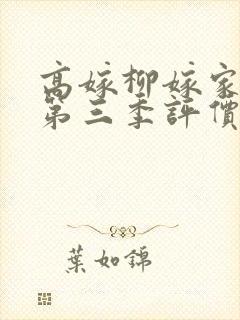 高嫁柳嫁家
第三季評價
葉如錦